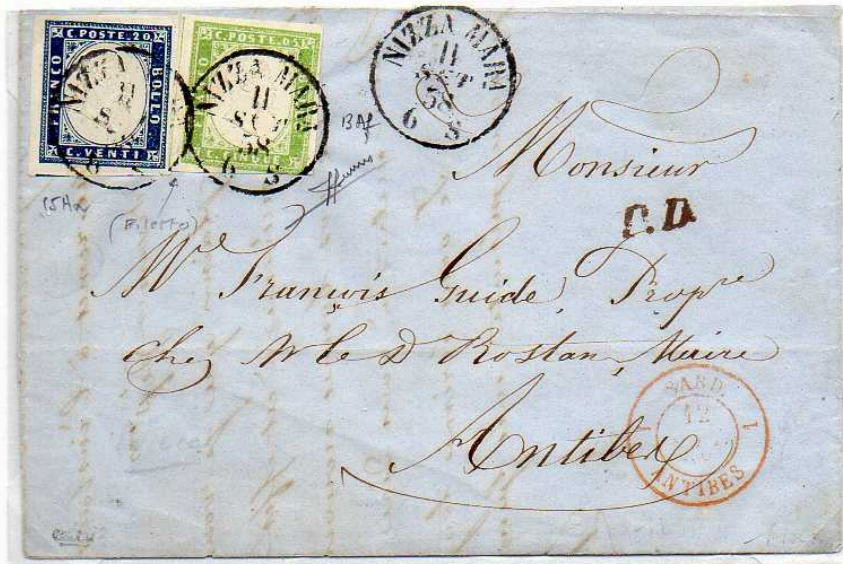 C. POSTE. 20.
FRANCO
BOLLO
C. VENTI
C. POSTE. 05.
NIZZA MARA
11
SET
58
6 8
NIZZA MARA
11
SET
58
6 8
13 Af
15Ha
(Filetto)
Monsieur
P.D.
Mr. François Guide, Propre
chez Mr le D Rostan, Maire
Antibes
SARD.
12
1 1
ANTIBES